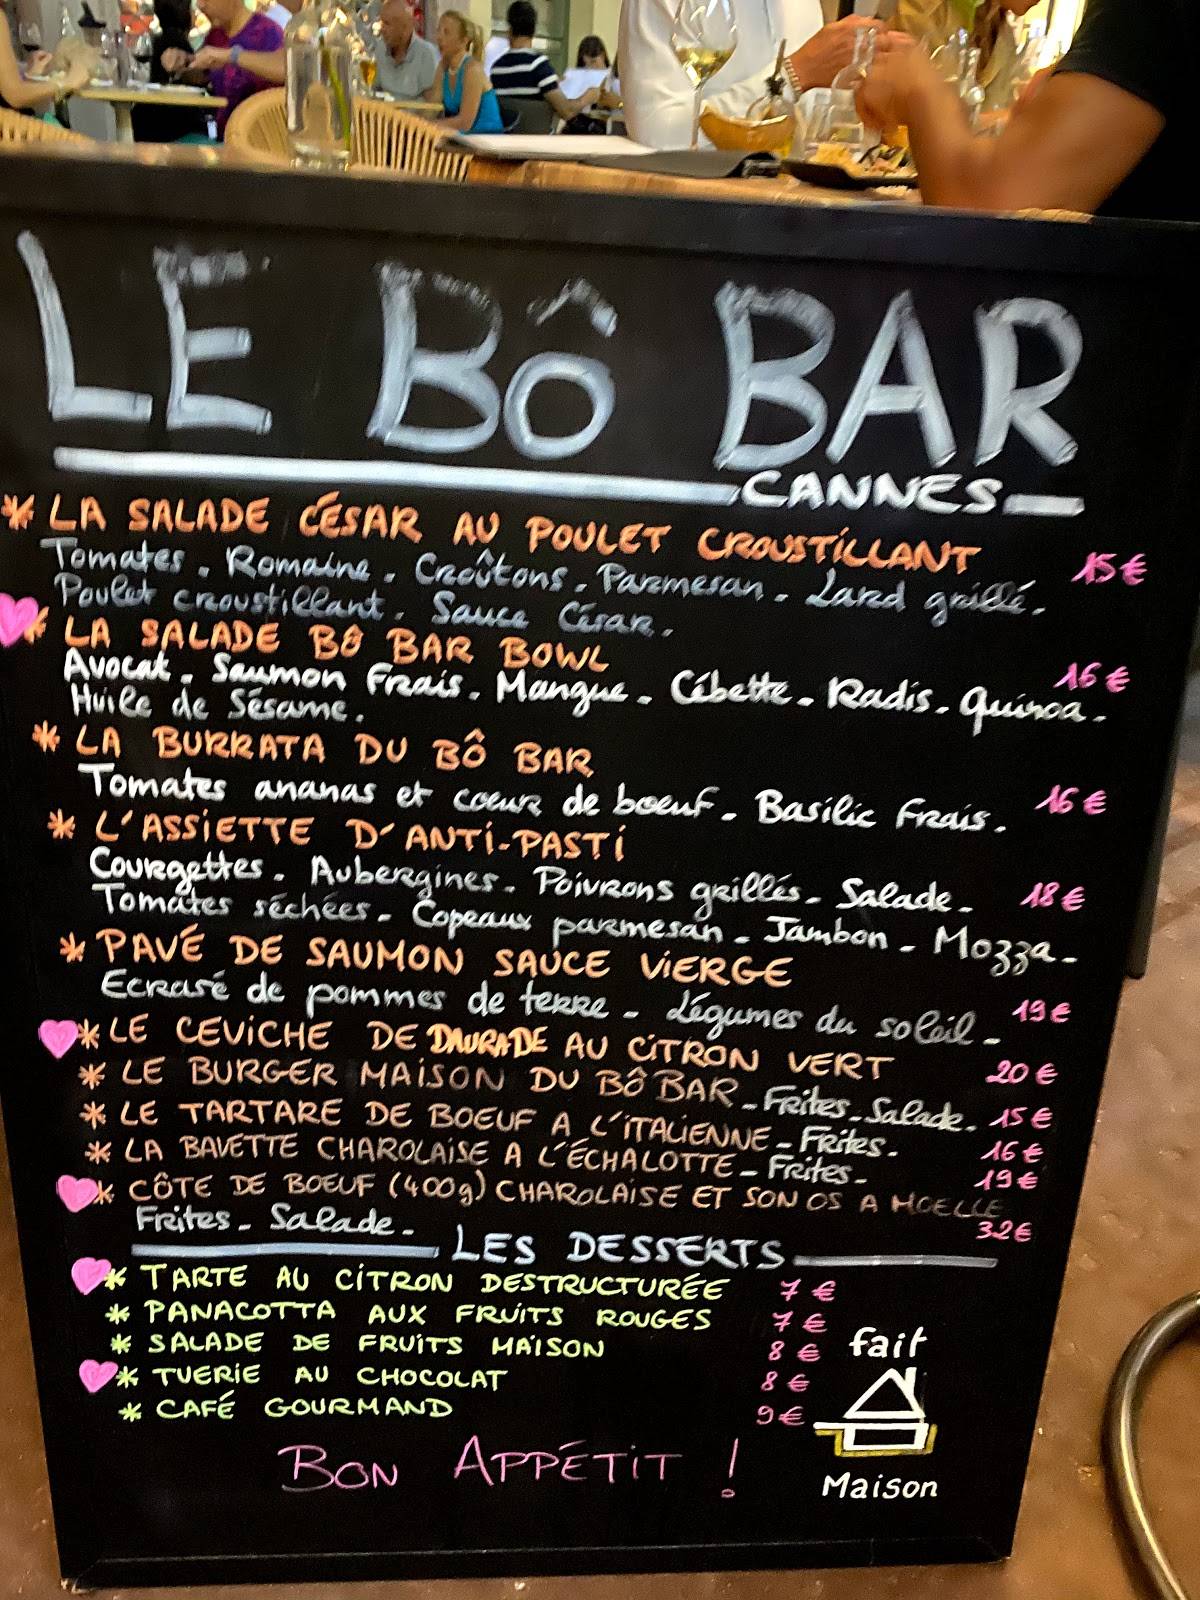 LE BÔ BAR
CANNES
* LA SALADE CÉSAR AU POULET CROUSTILLANT
Tomates. Romaine. Croûtons. Parmesan. Lard grillé. 15€
Poulet croustillant. Sauce César.
* LA SALADE BÔ BAR BOWL
Avocat. Saumon Frais. Mangue. Cébette. Radis. Quinoa. 16€
Huile de Sésame.
* LA BURRATA DU BÔ BAR
Tomates ananas et coeur de boeuf. Basilic Frais. 16€
* L'ASSIETTE D'ANTI-PASTI
Courgettes. Aubergines. Poivrons grillés. Salade. 18€
Tomates séchées. Copeaux parmesan. Jambon. Mozza.
* PAVÉ DE SAUMON SAUCE VIERGE
Ecrasé de pommes de terre. Légumes du soleil. 19€
* LE CEVICHE DE DAURADE AU CITRON VERT 20€
* LE BURGER MAISON DU BÔ BAR. Frites. Salade. 15€
* LE TARTARE DE BOEUF A L'ITALIENNE. Frites. 16€
* LA BAVETTE CHAROLAISE A L'ÉCHALOTTE. Frites. 19€
* CÔTE DE BOEUF (400g) CHAROLAISE ET SON OS A MOELLE
Frites. Salade. 32€
LES DESSERTS
* TARTE AU CITRON DESTRUCTURÉE 7€
* PANACOTTA AUX FRUITS ROUGES 7€
* SALADE DE FRUITS MAISON 8€
* TUERIE AU CHOCOLAT 8€
* CAFÉ GOURMAND 9€
fait
Maison
BON APPÉTIT !